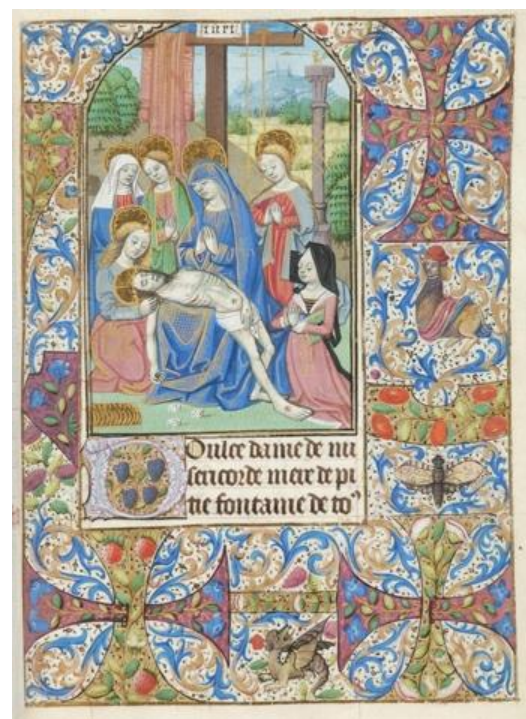 INRI
Dulce dame de mi
sericorde mere de pi
tie fontaine de toꝰ